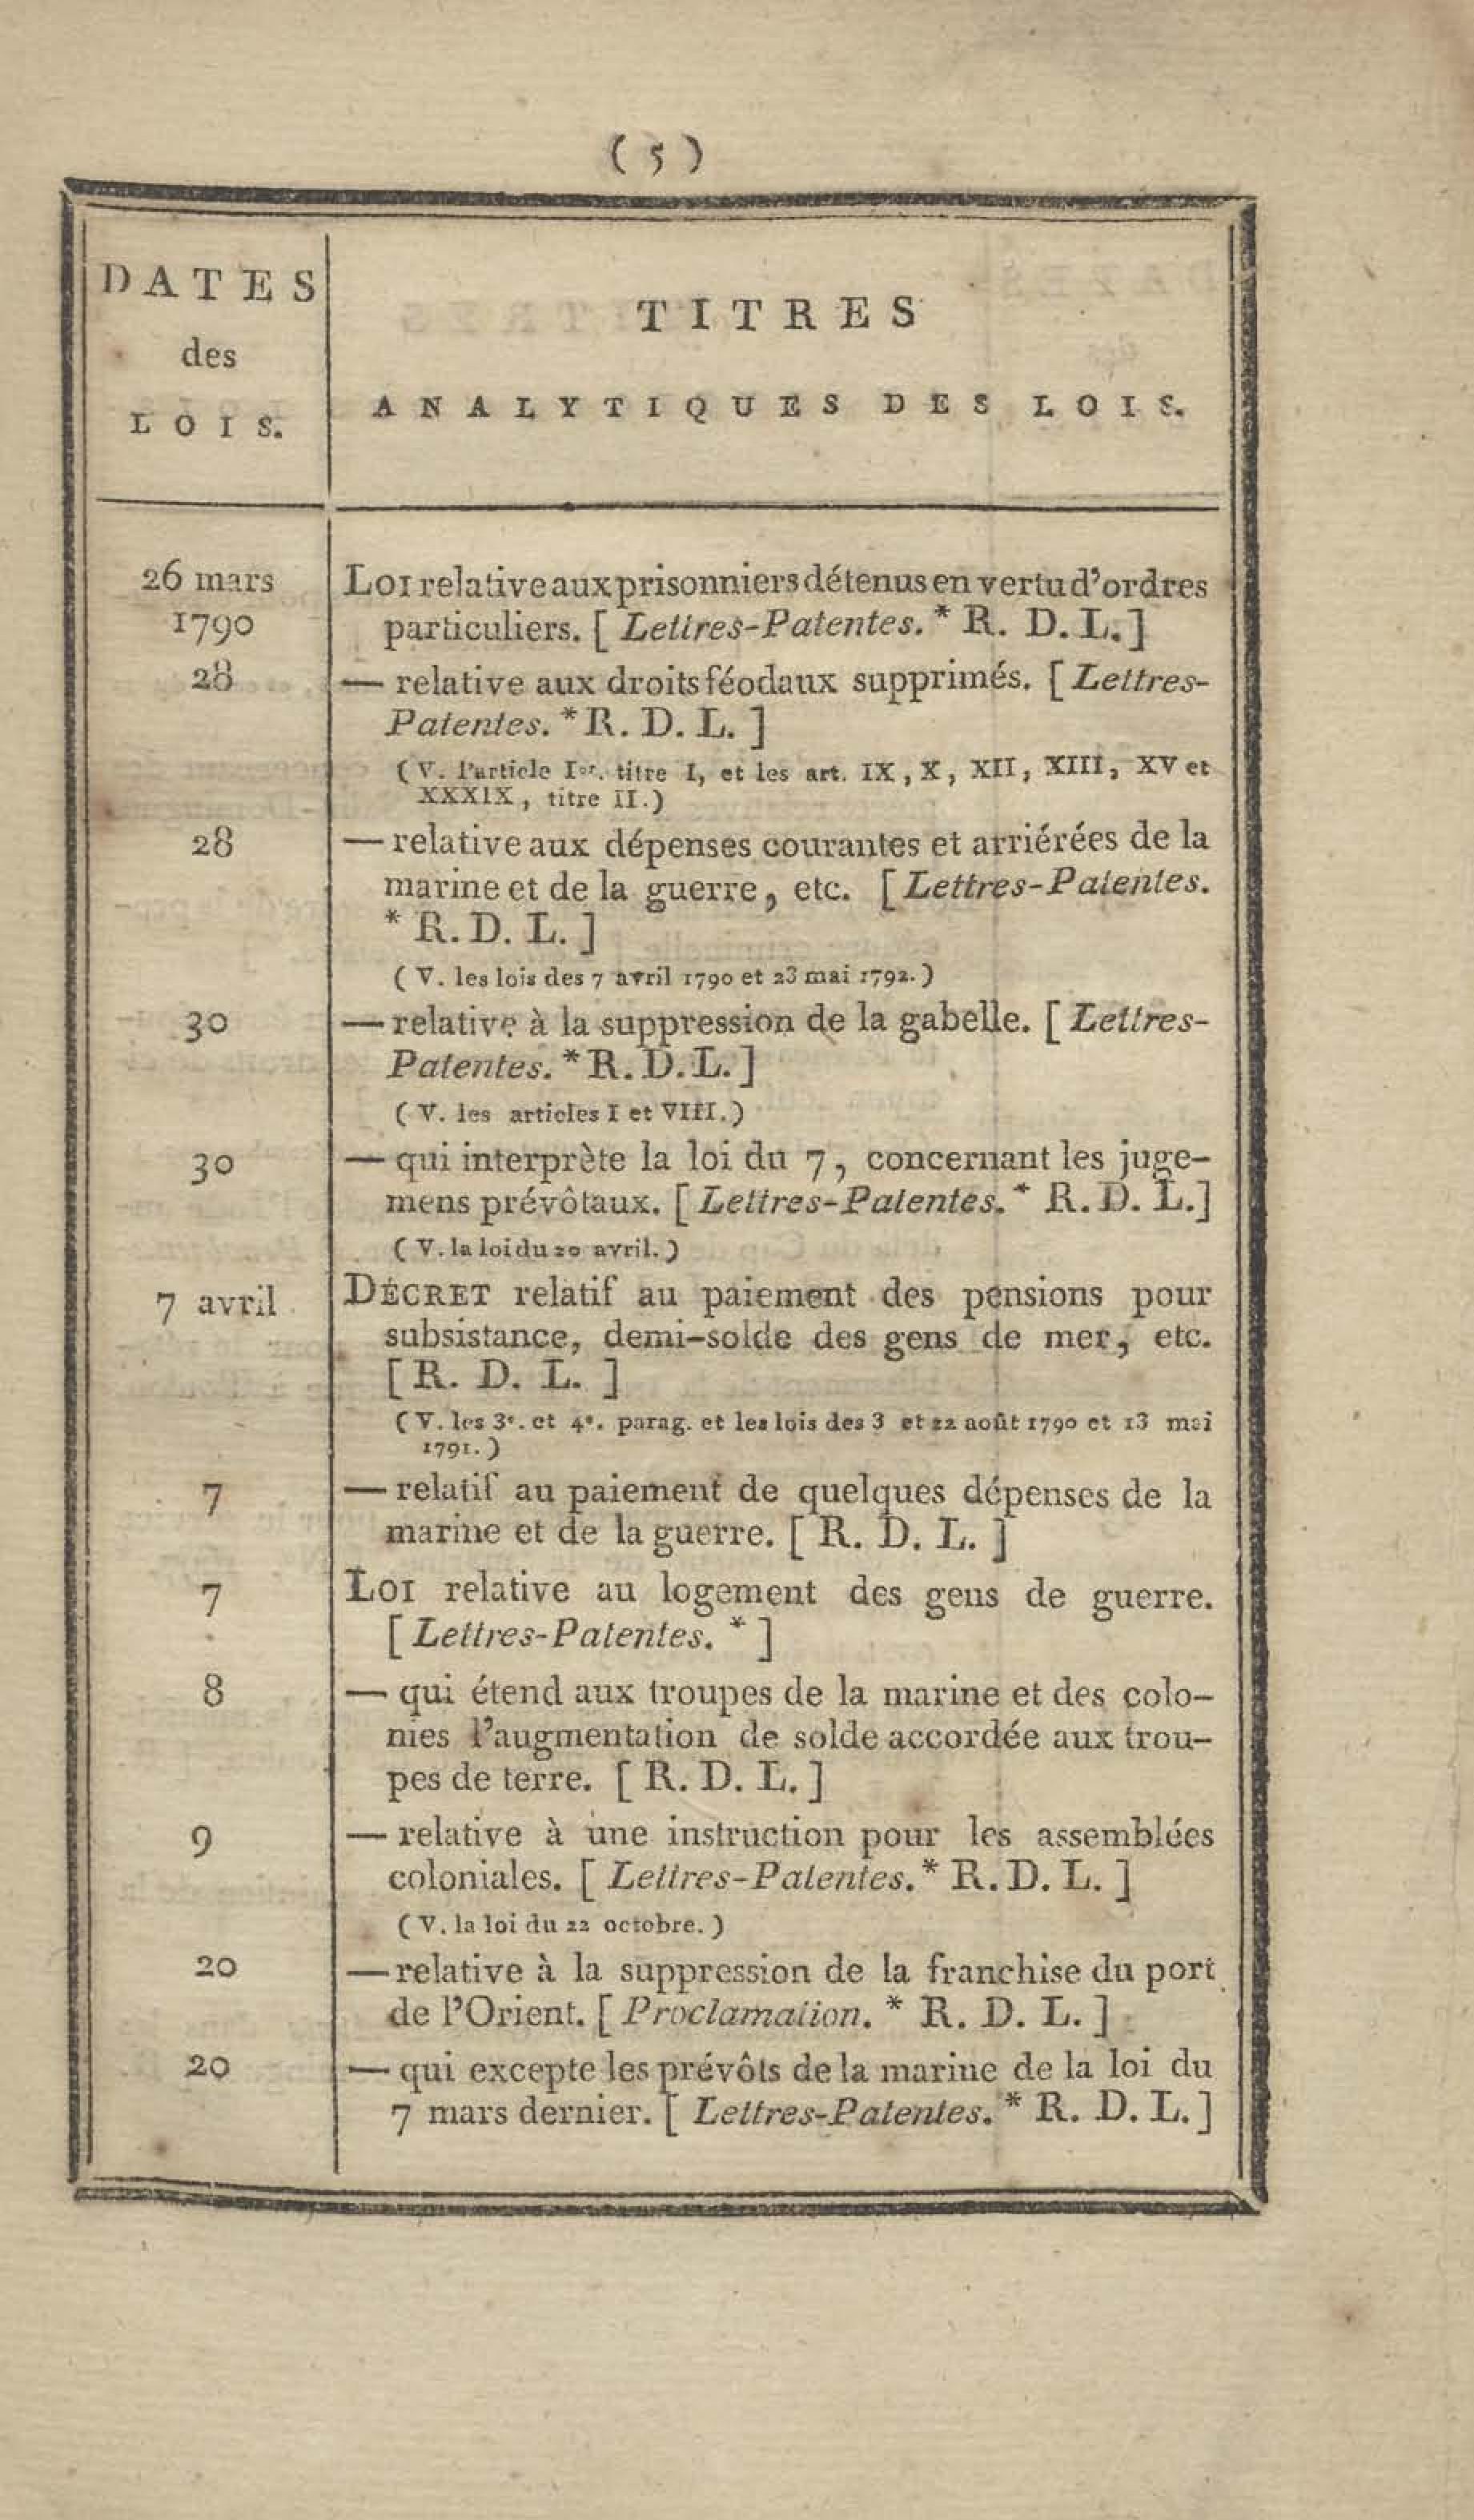 ( 5 )
DATES
des
LOIS.
TITRES
ANALYTIQUES DES LOIS.
26 mars
1790
LOI relative aux prisonniers détenus en vertu d'ordres
particuliers. [ Lettres-Patentes. * R. D. L. ]
28
— relative aux droits féodaux supprimés. [ Lettres-
Patentes. * R. D. L. ]
( V. l'article Ier. titre I, et les art. IX, X, XII, XIII, XV et
XXXIX, titre II. )
28
— relative aux dépenses courantes et arriérées de la
marine et de la guerre, etc. [ Lettres-Patentes.
* R. D. L. ]
( V. les lois des 7 avril 1790 et 23 mai 1792. )
30
— relative à la suppression de la gabelle. [ Lettres-
Patentes. * R. D. L. ]
( V. les articles I et VIII. )
30
— qui interprète la loi du 7, concernant les juge-
mens prévôtaux. [ Lettres-Patentes. * R. D. L. ]
( V. la loi du 20 avril. )
7 avril
DÉCRET relatif au paiement des pensions pour
subsistance, demi-solde des gens de mer, etc.
[ R. D. L. ]
( V. les 3e. et 4e. parag. et les lois des 3 et 22 août 1790 et 13 mai
1791. )
7
— relatif au paiement de quelques dépenses de la
marine et de la guerre. [ R. D. L. ]
7
LOI relative au logement des gens de guerre.
[ Lettres-Patentes. * ]
8
— qui étend aux troupes de la marine et des colo-
nies l'augmentation de solde accordée aux trou-
pes de terre. [ R. D. L. ]
9
— relative à une instruction pour les assemblées
coloniales. [ Lettres-Patentes. * R. D. L. ]
( V. la loi du 22 octobre. )
20
— relative à la suppression de la franchise du port
de l'Orient. [ Proclamation. * R. D. L. ]
20
— qui excepte les prévôts de la marine de la loi du
7 mars dernier. [ Lettres-Patentes. * R. D. L. ]